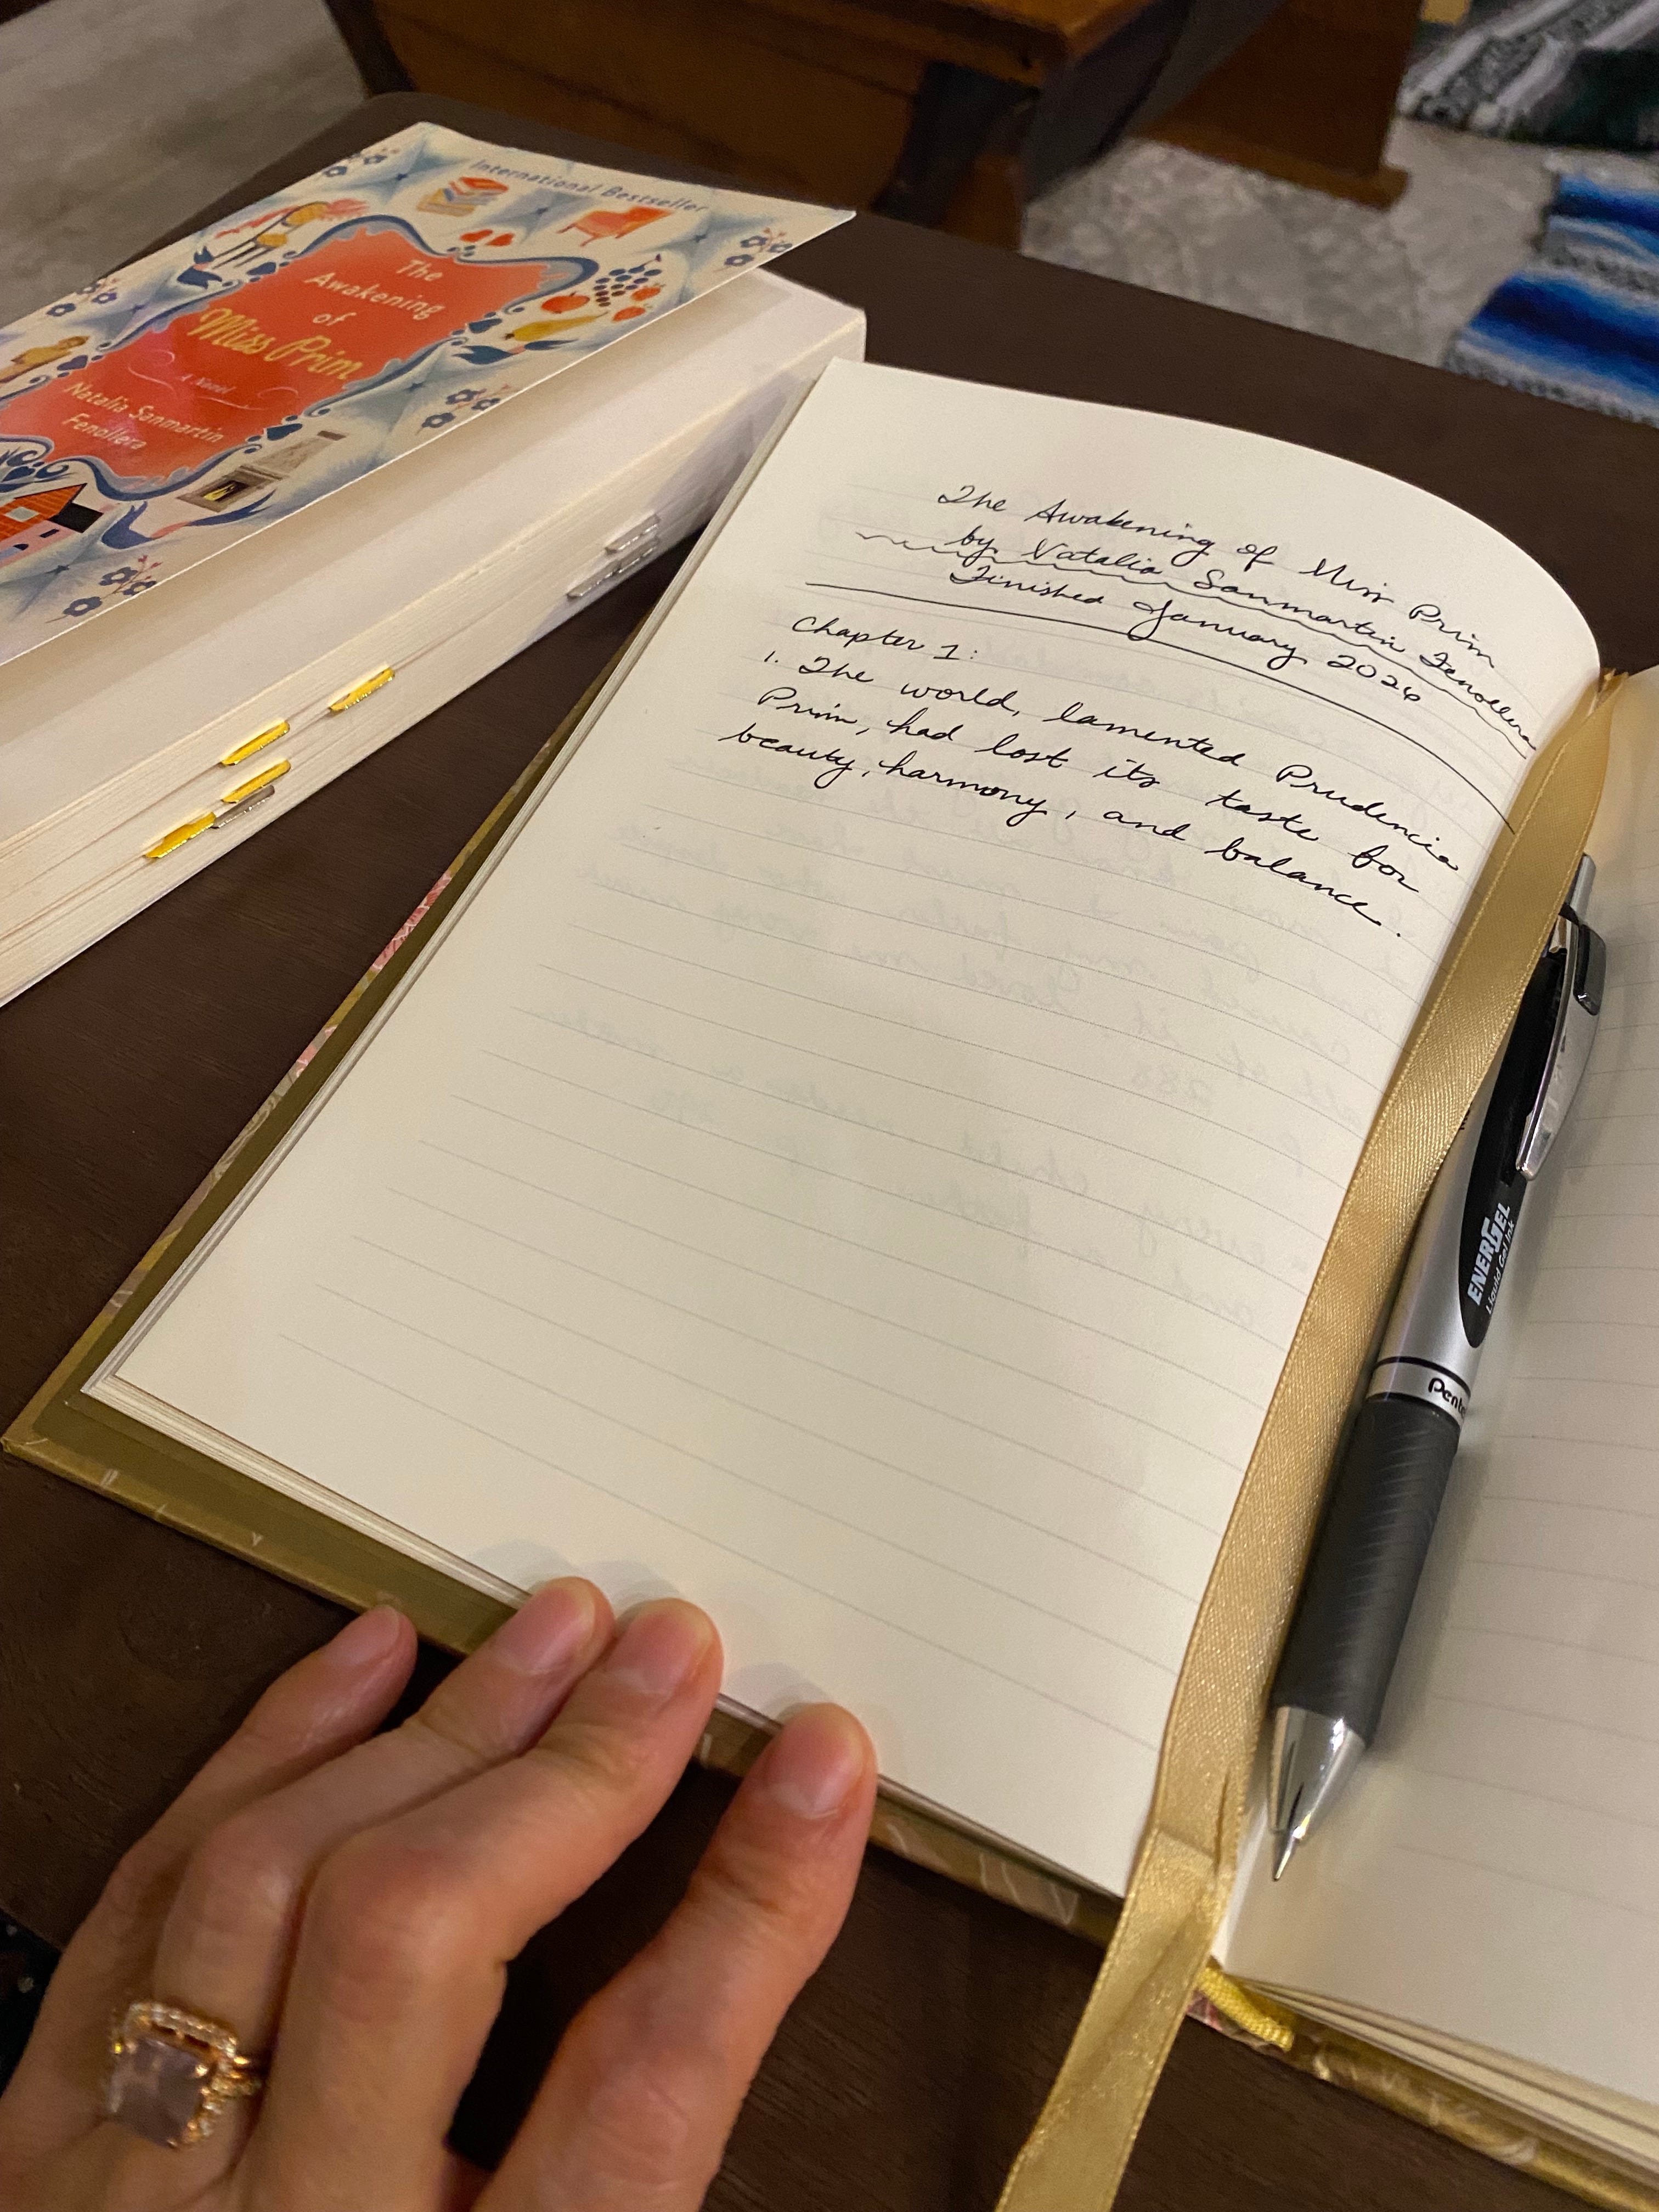 International Bestseller
The
Awakening
of
Miss Prim
A Novel
Natalia Sanmartin
Fenollera
The Awakening of Miss Prim
by Natalia Sanmartin Fenollera
Finished January 2026
Chapter 1:
1. The world, lamented Prudencia
Prim, had lost its taste for
beauty, harmony, and balance.
ENERGEL
Liquid Gel Ink
Pente